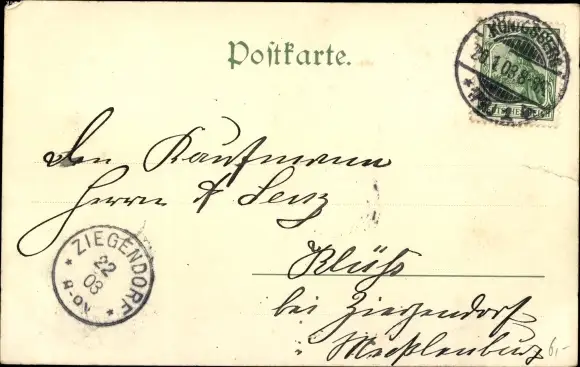 Postkarte.
KÖNIGSBERG
Den Kaufmann
Herrn A Lenz
Klüß
bei Ziegendorf
i Mecklenburg
ZIEGENDORF
6,-